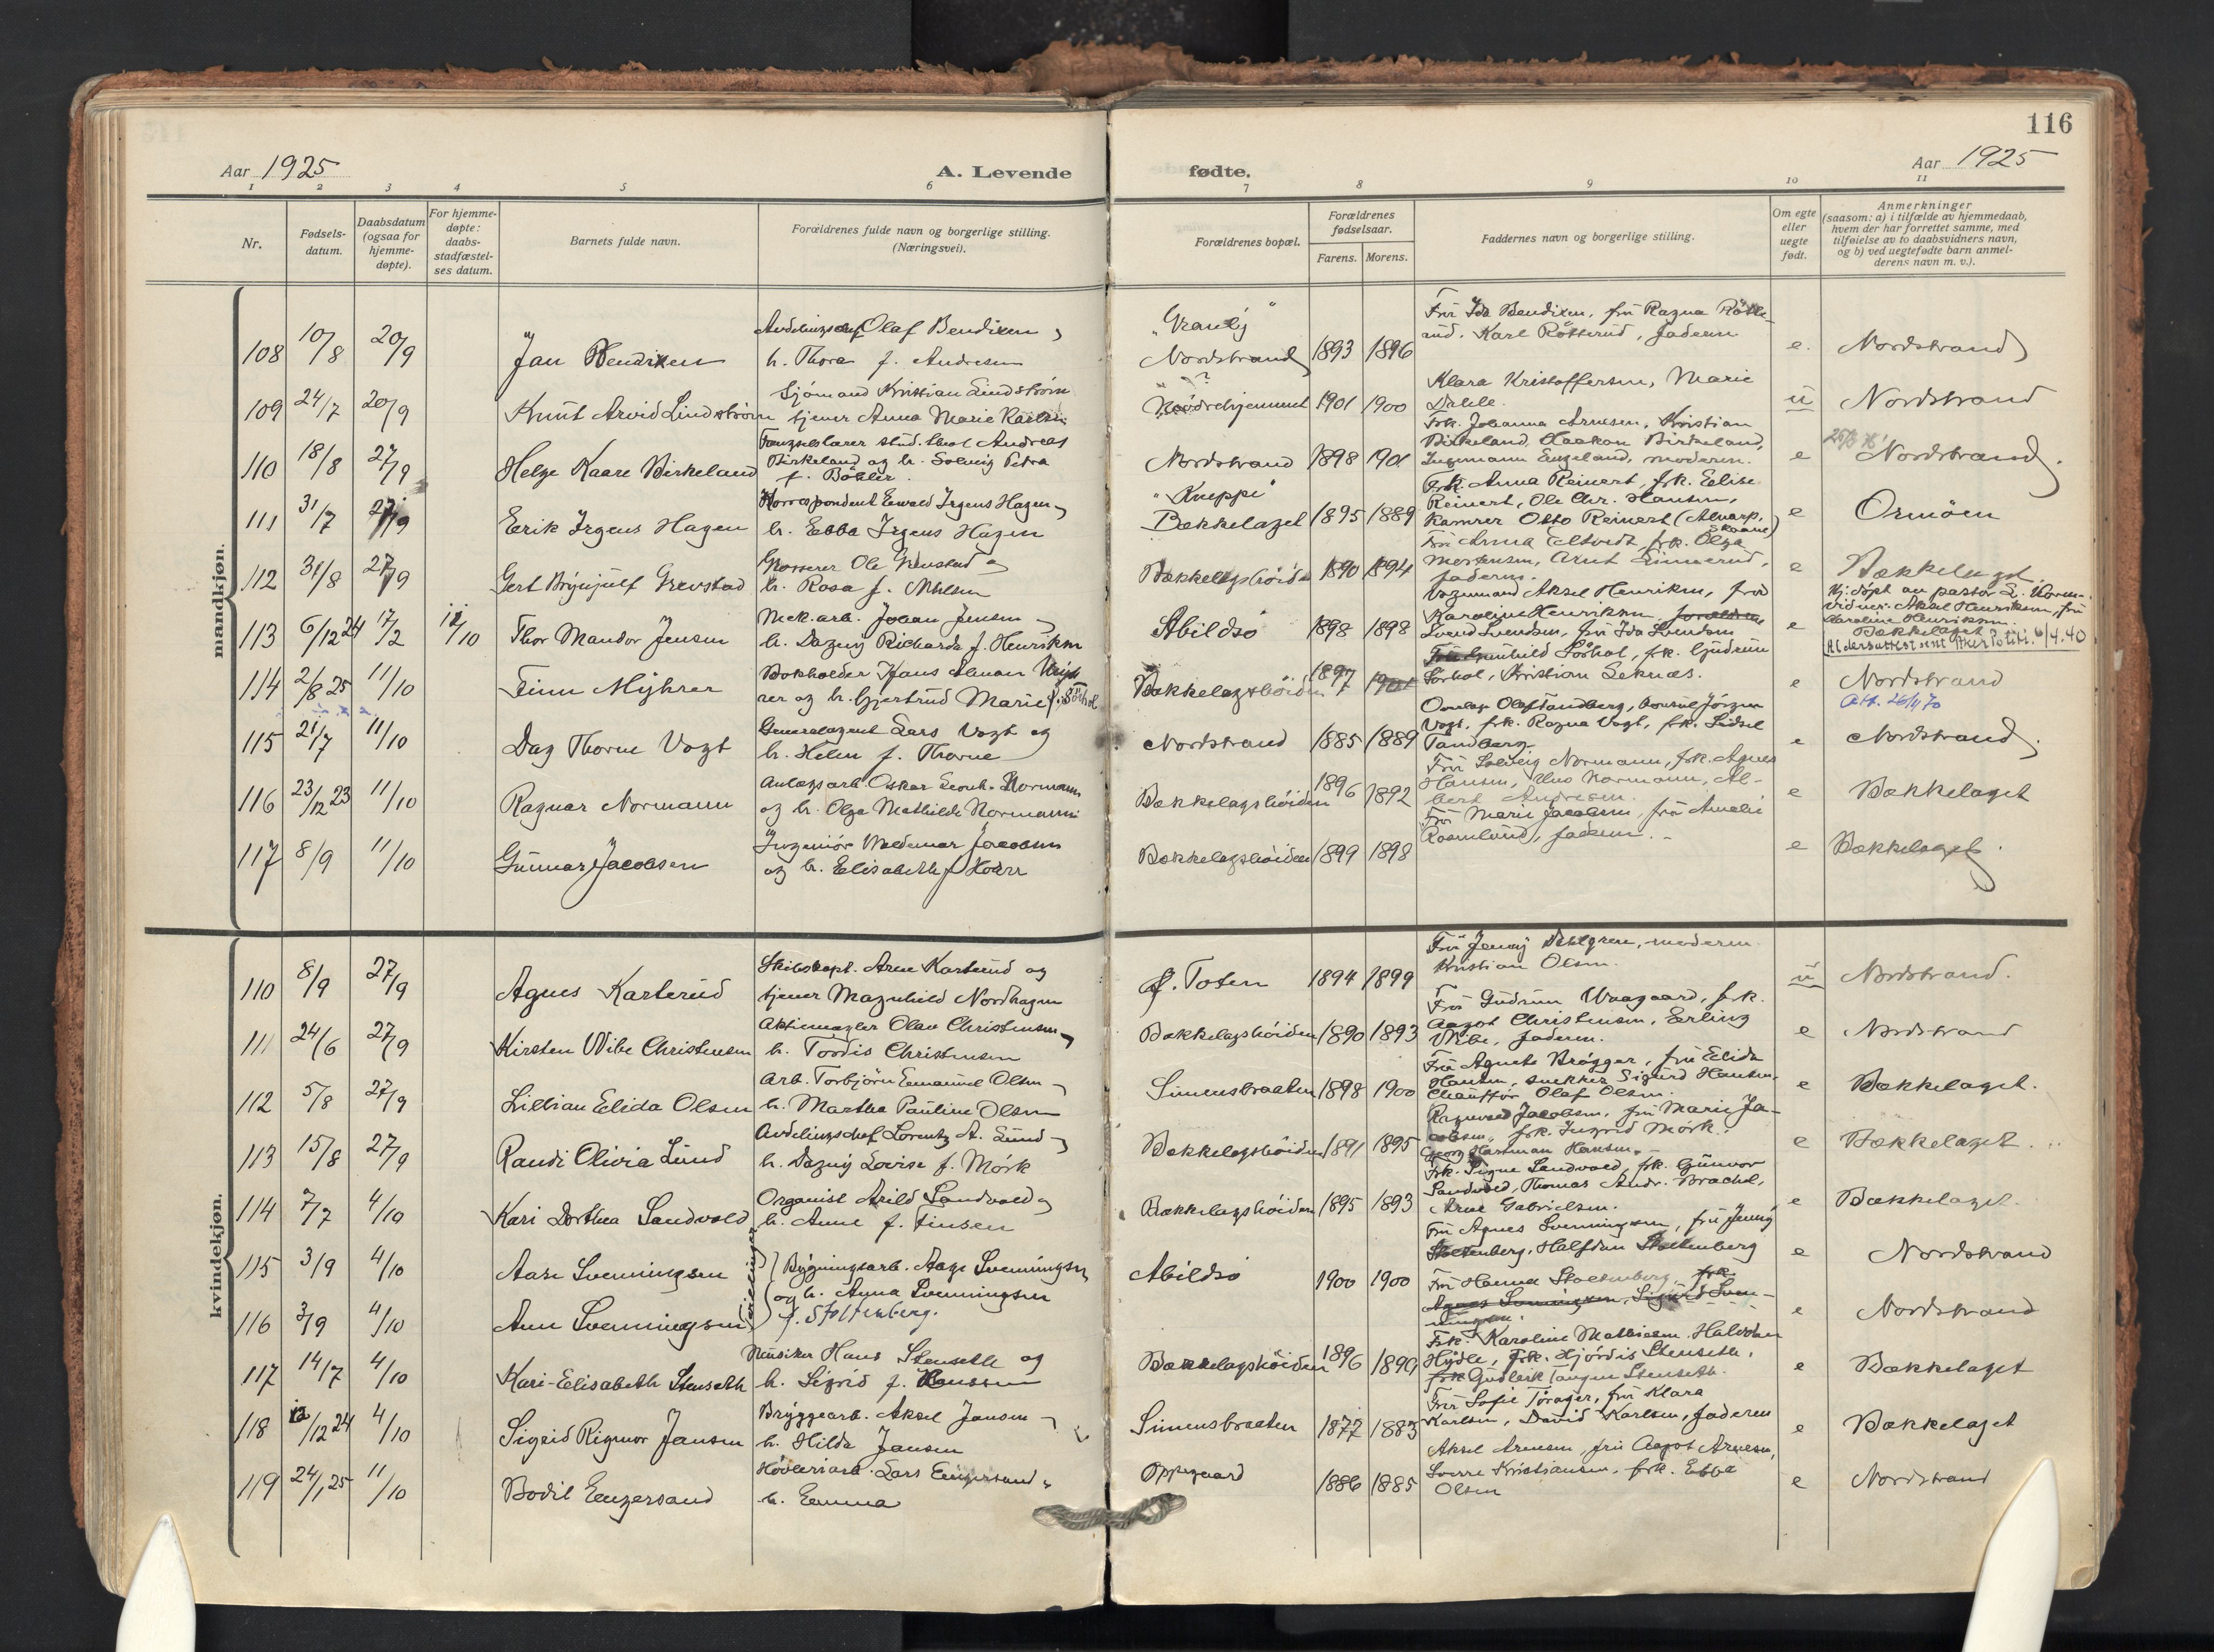 116
Aar 1925
A. Levende
fødte.
Aar 1925
1 2 3 4 5 6 7 8 9 10 11
Nr.
Fødsels-
datum.
Daabsdatum
(ogsaa for
hjemme-
døpte).
For hjemme-
døpte:
daabs-
stadfæstel-
ses datum.
Barnets fulde navn.
Forældrenes fulde navn og borgerlige stilling.
(Næringsvei).
Forældrenes bopæl.
Forældrenes
fødselsaar.
Farens. Morens.
Faddernes navn og borgerlige stilling.
Om egte
eller
uegte
født.
Anmerkninger
(saasom: a) i tilfælde av hjemmedaab,
hvem der har forrettet samme, med
tilføielse av to daabsvidners navn,
og b) ved uegtefødte barn anmel-
derens navn m. v.).
mandkjøn.
108 10/8 20/9 Jan Bendixen
Avdelingschef Olaf Bendixen
h. Thora f. Andresen
Nordstrand 1893 1896
Frü Ida Bendixen, frü Ragna Rötte-
rüd, Karl Rötterüd, faderen
e. Nordstrand
109 24/7 20/9 Knüt Arvid Lindström
Sjömand Kristian Lindström
tjener Anna Marie Karlsen
1901 1900
Klara Kristoffersen, Marie
ü Nordstrand
110 18/8 27/9 Helge Kaare Birkeland
Fængselslærer stud. theol Andreas
Birkeland og h. Solveig Petra
f. Böhler
Nordstrand 1898 1901
Frk. Johanna Arnesen, Kristian
Birkeland, Haakon Birkeland,
Ingemann Engeland, moderen.
e Nordstrand
111 31/7 27/9 Erik Irgens Hagen
Korrespondent Ewald Irgens Hagen
h. Ebba Irgens Hagen
"Kneppe"
Bækkelaget 1895 1889
Frk. Anna Reinert, frk. Elise
Reinert, Ole Chr. Hansen,
Kamrer Otto Reinert (Alnarp,
Skaane)
e Ormöen
112 31/8 27/9 Gert Brynjülf Grevstad
Grosserer Ole Grevstad og
h. Rosa f. Nilsen
Bækkelagshöiden 1890 1894
Mortensen, Arnt
faderen.
e Bækkelaget
113 6/12 24 17/2 11/10 Thor Mandor Jensen
Mek. arb. Johan Jensen
h. Dagny Richarda f. Henriksen
Abildsö 1898 1898
Vognmand Aksel Henriksen, frü
Karoline Henriksen
Svend Svendsen, frü Ida Svendsen
e
Hj. döpt av pastor
Vidner: Aksel Henriksen, frü
Karoline Henriksen.
Bækkelaget
Aldersattest sendt Aker Politi. 6/4.40
114 2/8 25 11/10 Finn Myhrer
Bokholder Hans Myh-
rer og h. Gjertrüd Marie f. Sörhol
Bækkelagshöiden 1897 1901
Sörhol, frk. Güdrün
Sörhol, Kristian Seknæs.
e Nordstrand
Att. 26/4 70
115 21/7 11/10 Dag Thorne Vogt
Generalagent Lars Vogt og
h. Helen f. Thorne
Nordstrand 1885 1889
Olaf Tandberg, konsül Jörgen
Vogt, frk. Ragna Vogt, frk. Sidsel
Tandberg
e Nordstrand
116 23/12 23 11/10 Ragnar Normann
Anlægsarb. Oskar Leonh. Normann
og h. Olga Mathilde Normann
Bækkelagshöiden 1896 1892
Frü Solveig Normann, frk. Agnes
Hansen, Uno Normann, Al-
bert Andresen.
e Bækkelaget
117 8/9 11/10 Günnar Jacobsen
Ingeniör Waldemar Jacobsen
og h. Elisabeth f. Hoërr
Bækkelagshöiden 1899 1898
Frü Marie Jacobsen, frü Amelie
Rosenlünd, faderen.
e Bækkelaget
kvindekjøn.
110 8/9 27/9 Agnes Karterüd
Skibskapt. Arne Karterüd og
tjener Magnhild Nordhagen
Ø. Toten 1894 1899
Frü Jenny Dahlgren, moderen
Kristian Olsen.
ü Nordstrand.
111 24/6 27/9 Kirsten Wibe Christensen
Aktiemægler Olav Christensen
h. Tordis Christensen
Bækkelagshöiden 1890 1893
Frü Güdrün Waagaard, frk.
Aagot Christensen, Erling
Wibe, faderen.
e Nordstrand
112 5/8 27/9 Lillian Elida Olsen
Arb. Torbjörn Emanuel Olsen
h. Martha Pauline Olsen
Simensbraaten 1898 1900
Frü Agnete Brögger, frü Elida
Hansen, snekker Sigürd Hansen,
Chaüfför Olaf Olsen.
e Bækkelaget.
113 15/8 27/9 Randi Olivia Lünd
Avdelingschef Lorentz A. Lünd
h. Dagny Lovise f. Mörk
Bækkelagshöiden 1891 1895
Ragnvald Jacobsen, frü Marie Ja-
cobsen, frk. Ingrid Mörk.
Georg Hartman Hansen.
e Bækkelaget.
114 7/7 4/10 Kari Dorthea Sandvold
Organist Arild Sandvold
h. Anne f. Finsen
Bækkelagshöiden 1895 1893
Frk. Signe Sandvold, frk. Günvor
Sandvold, Thomas Andr. Brachel,
Arne Gabrielsen.
e Bækkelaget.
115 3/9 4/10 Aase Svenningsen
116 3/9 4/10 Ann Svenningsen
(tvillinger)
Bygningsarb. Aage Svenningsen
og h. Anna Svenningsen
f. Stoltenberg.
Abildsö 1900 1900
Frü Agnes Svenningsen, frü Jenny
Stoltenberg, Halfdan Stoltenberg
e Nordstrand
Frü Hanna Stoltenberg, frk.
Agnes Svenningsen, Sigürd Sven-
ningsen.
e Nordstrand
117 14/7 4/10 Kari-Elisabeth Stenseth
Müsiker Hans Stenseth og
h. Sigrid f. Hanssen
Bækkelagshöiden 1896 1899
Frk. Karoline Mathiesen, Halvdan
Hydle, Frk. Hjördis Stenseth,
Güdleik Tangen Stenseth.
e Bækkelaget
118 12/12 24 4/10 Sigrid Rigmor Jansen
Bryggearb. Aksel Jansen
h. Hilda Jansen
Simensbraaten 1877 1883
Frü Sofie Torager, frü Klara
Karlsen, David Karlsen, faderen
e Bækkelaget
119 24/1 25 11/10 Bodil Engersand
Høvleriarb. Lars Engersand
h. Emma
Oppegaard 1886 1885
Aksel Arnesen, frü Aagot Arnesen,
Sverre Kristiansen, frk. Ebba
Olsen
e Nordstrand